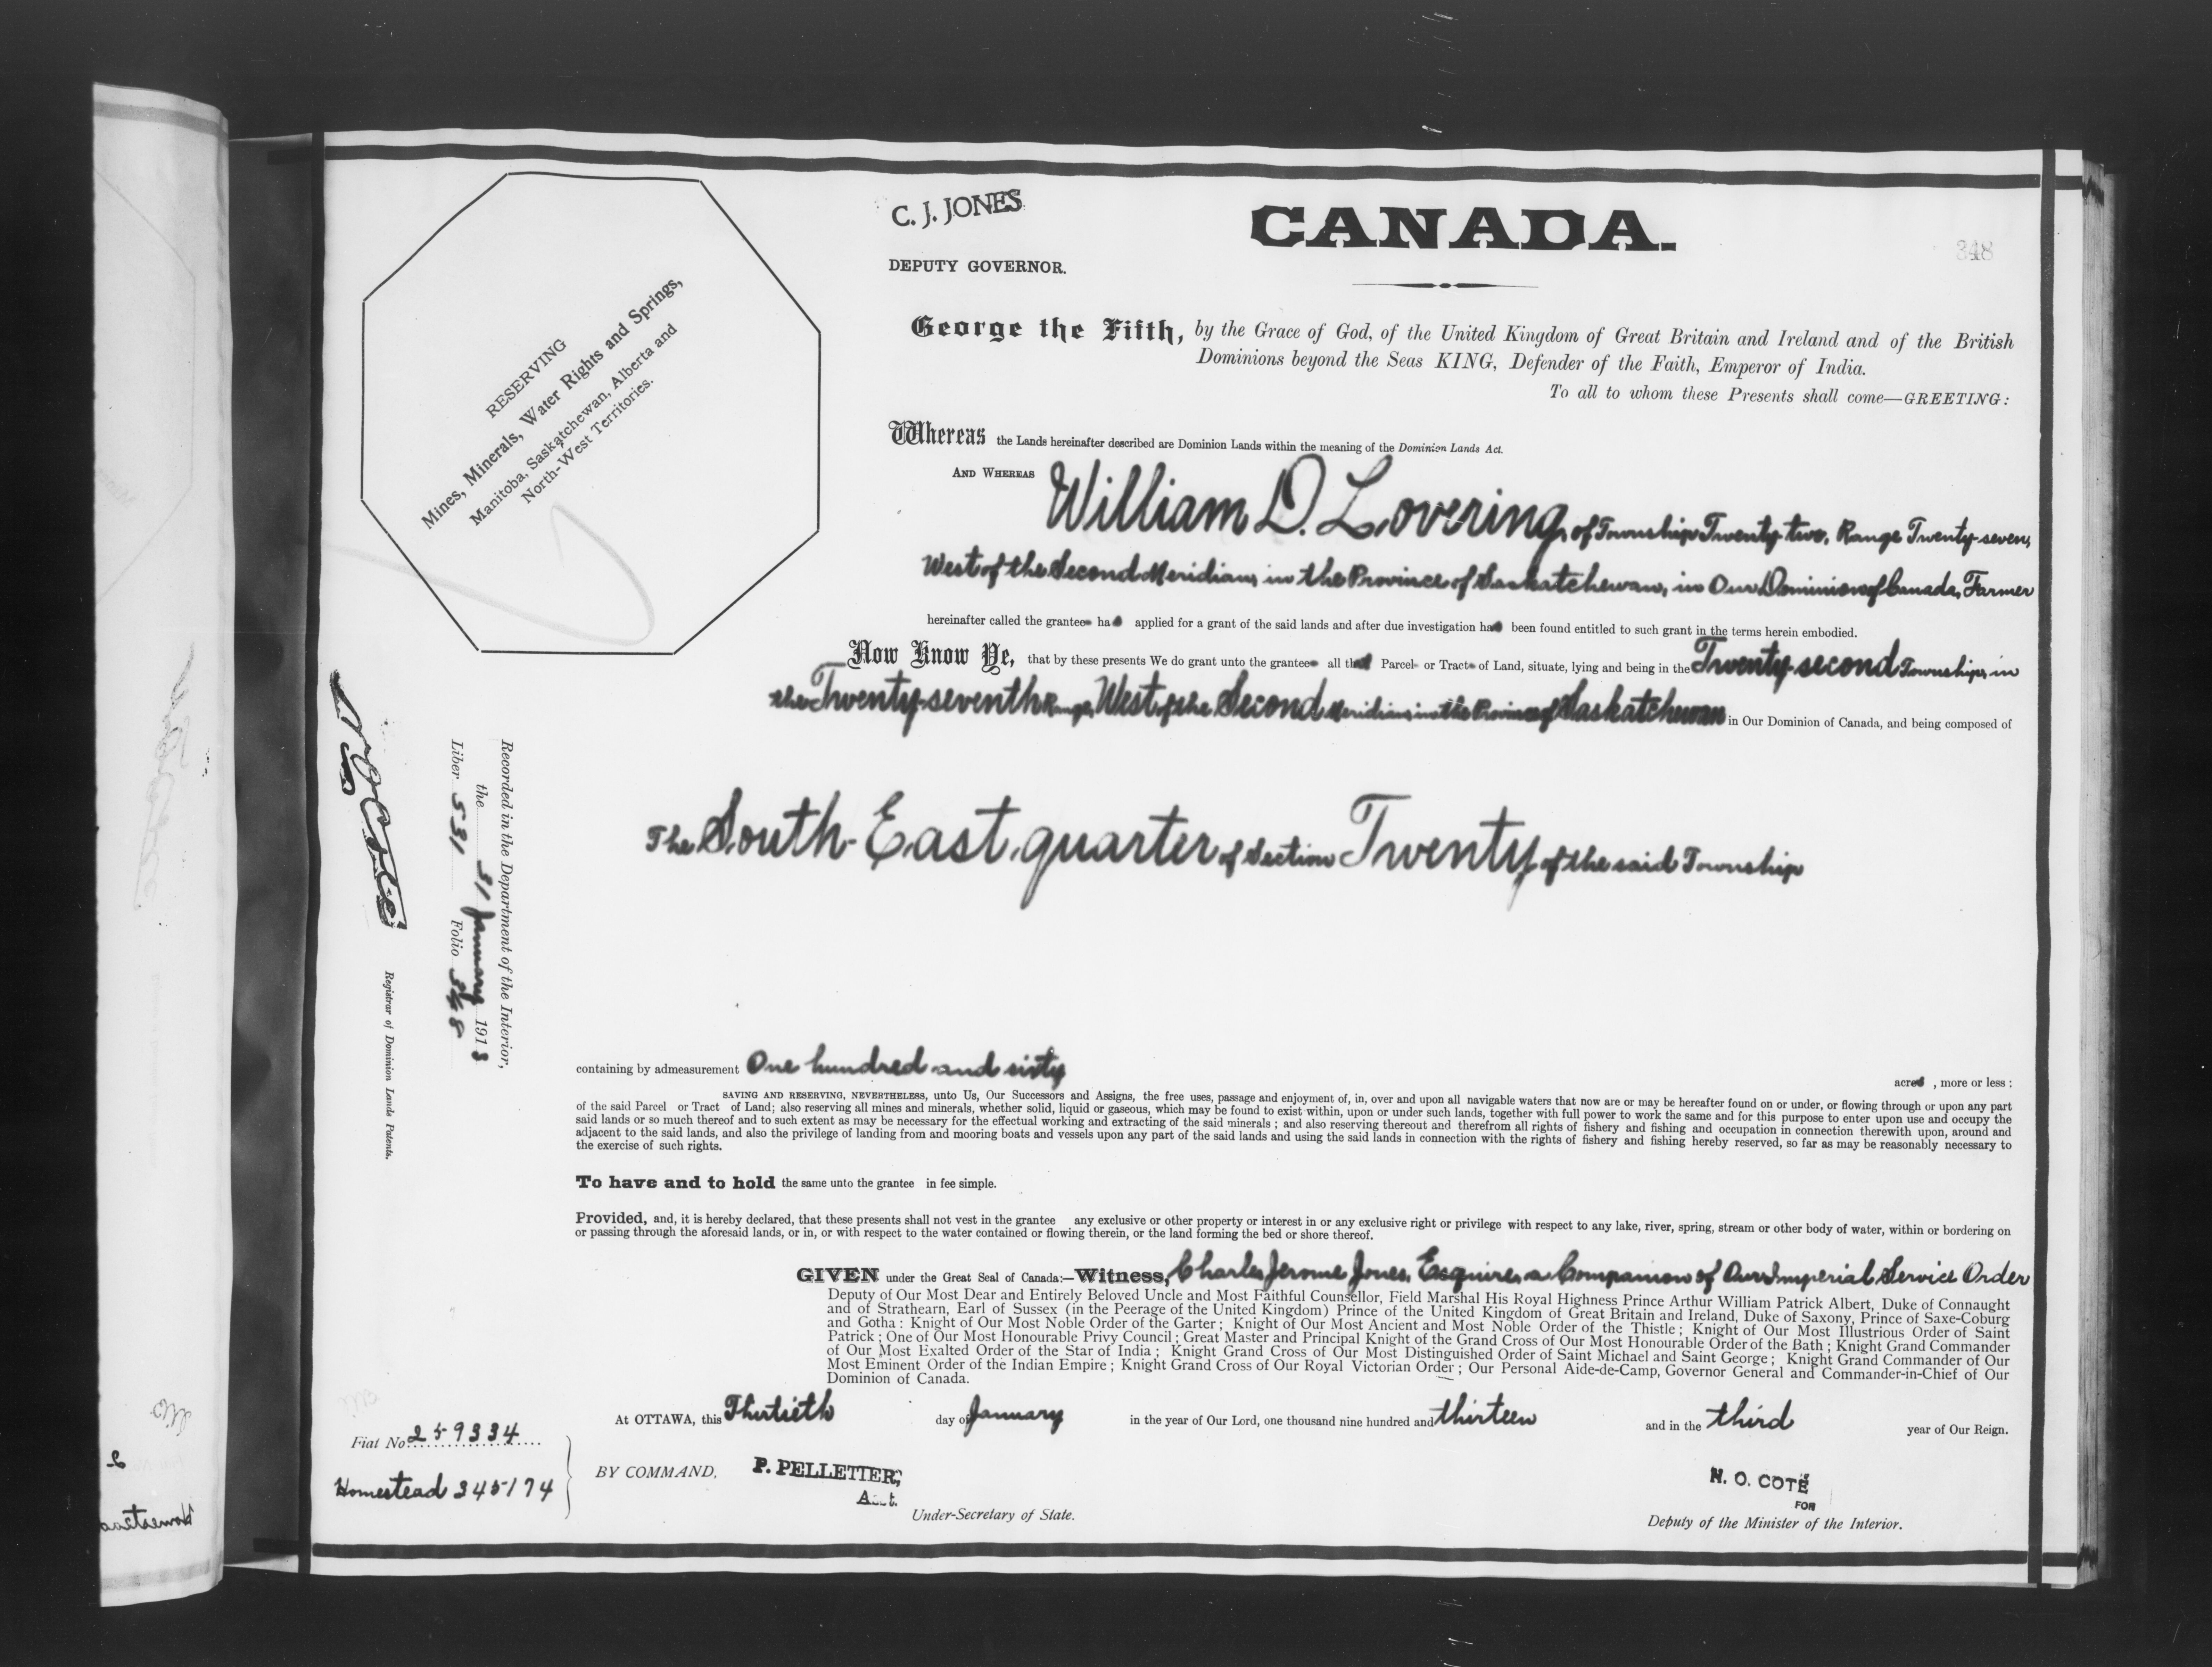 C. J. JONES
DEPUTY GOVERNOR.
CANADA.
348
RESERVING
Mines, Minerals, Water Rights and Springs,
Manitoba, Saskatchewan, Alberta and
North-West Territories.
George the Fifth, by the Grace of God, of the United Kingdom of Great Britain and Ireland and of the British
Dominions beyond the Seas KING, Defender of the Faith, Emperor of India.
To all to whom these Presents shall come—GREETING:
Whereas the Lands hereinafter described are Dominion Lands within the meaning of the Dominion Lands Act.
AND WHEREAS William D. Lovering, of Township Twenty-two, Range Twenty-seven,
West of the Second Meridian, in the Province of Saskatchewan, in Our Dominion of Canada, Farmer
hereinafter called the grantee has applied for a grant of the said lands and after due investigation has been found entitled to such grant in the terms herein embodied.
Now Know Ye, that by these presents We do grant unto the grantee all that Parcel or Tract of Land, situate, lying and being in the Twenty-second Township, in
the Twenty-seventh Range, West of the Second Meridian, in the Province of Saskatchewan in Our Dominion of Canada, and being composed of
The South-East quarter of Section Twenty of the said Township
Recorded in the Department of the Interior,
the 31 January 1913
Liber 531 Folio 348
N O Coté
Registrar of Dominion Lands Patents.
containing by admeasurement One hundred and sixty acres, more or less :
SAVING AND RESERVING, NEVERTHELESS, unto Us, Our Successors and Assigns, the free uses, passage and enjoyment of, in, over and upon all navigable waters that now are or may be hereafter found on or under, or flowing through or upon any part
of the said Parcel or Tract of Land; also reserving all mines and minerals, whether solid, liquid or gaseous, which may be found to exist within, upon or under such lands, together with full power to work the same and for this purpose to enter upon use and occupy the
said lands or so much thereof and to such extent as may be necessary for the effectual working and extracting of the said minerals ; and also reserving thereout and therefrom all rights of fishery and fishing and occupation in connection therewith upon, around and
adjacent to the said lands, and also the privilege of landing from and mooring boats and vessels upon any part of the said lands and using the said lands in connection with the rights of fishery and fishing hereby reserved, so far as may be reasonably necessary to
the exercise of such rights.
To have and to hold the same unto the grantee in fee simple.
Provided, and, it is hereby declared, that these presents shall not vest in the grantee any exclusive or other property or interest in or any exclusive right or privilege with respect to any lake, river, spring, stream or other body of water, within or bordering on
or passing through the aforesaid lands, or in, or with respect to the water contained or flowing therein, or the land forming the bed or shore thereof.
GIVEN under the Great Seal of Canada:—Witness, Charles Jerome Jones, Esquire, a Companion of Our Imperial Service Order
Deputy of Our Most Dear and Entirely Beloved Uncle and Most Faithful Counsellor, Field Marshal His Royal Highness Prince Arthur William Patrick Albert, Duke of Connaught
and of Strathearn, Earl of Sussex (in the Peerage of the United Kingdom) Prince of the United Kingdom of Great Britain and Ireland, Duke of Saxony, Prince of Saxe-Coburg
and Gotha : Knight of Our Most Noble Order of the Garter ; Knight of Our Most Ancient and Most Noble Order of the Thistle ; Knight of Our Most Illustrious Order of Saint
Patrick ; One of Our Most Honourable Privy Council ; Great Master and Principal Knight of the Grand Cross of Our Most Honourable Order of the Bath ; Knight Grand Commander
of Our Most Exalted Order of the Star of India ; Knight Grand Cross of Our Most Distinguished Order of Saint Michael and Saint George ; Knight Grand Commander of Our
Most Eminent Order of the Indian Empire ; Knight Grand Cross of Our Royal Victorian Order ; Our Personal Aide-de-Camp, Governor General and Commander-in-Chief of Our
Dominion of Canada.
At OTTAWA, this Thirtieth day of January in the year of Our Lord, one thousand nine hundred and thirteen and in the third year of Our Reign.
Fiat No. 259334
Homestead 345174
BY COMMAND, P. PELLETIER,
Act.
Under-Secretary of State.
N. O. COTÉ
FOR
Deputy of the Minister of the Interior.